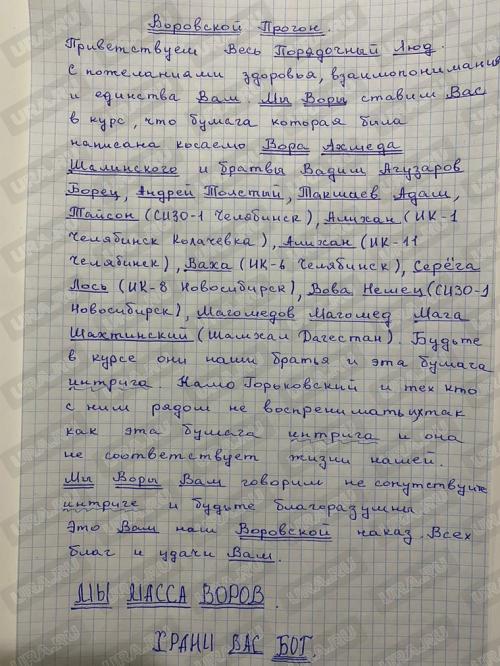 Воровской Прогон.
Приветствуем Весь Порядочный Люд.
С пожеланиями здоровья, взаимопонимания
и единства Вам. Мы Воры ставим Вас
в курс, что бумага которая была
написана касаемо Вора Ахмеда
Шалинского и братвы Вадим Агузаров
Борец, Андрей Толстый, Такшаев Адам,
Тайсон (СИЗО-1 Челябинск), Алихан (ИК-1
Челябинск Колачевка), Алихан (ИК-11
Челябинск), Ваха (ИК-6 Челябинск), Серёга
Лось (ИК-8 Новосибирск), Вова Немец (СИЗО-1
Новосибирск), Магомедов Магомед Мага
Шахтинский (Шамхал Дагестан). Будьте
в курсе они наши братья и эта бумага
интрига. Намо Горьковский и тех кто
с ним рядом не воспренимать ихтак
как эта бумага интрига и она
не соответствует жизни нашей.
Мы Воры Вам говорим не сопутствуйте
интриге и будьте благоразумны
Это Вам наш Воровской наказ. Всех
благ и удачи Вам.
МЫ МАССА ВОРОВ.
ХРАНИ ВАС БОГ.
URA.RU